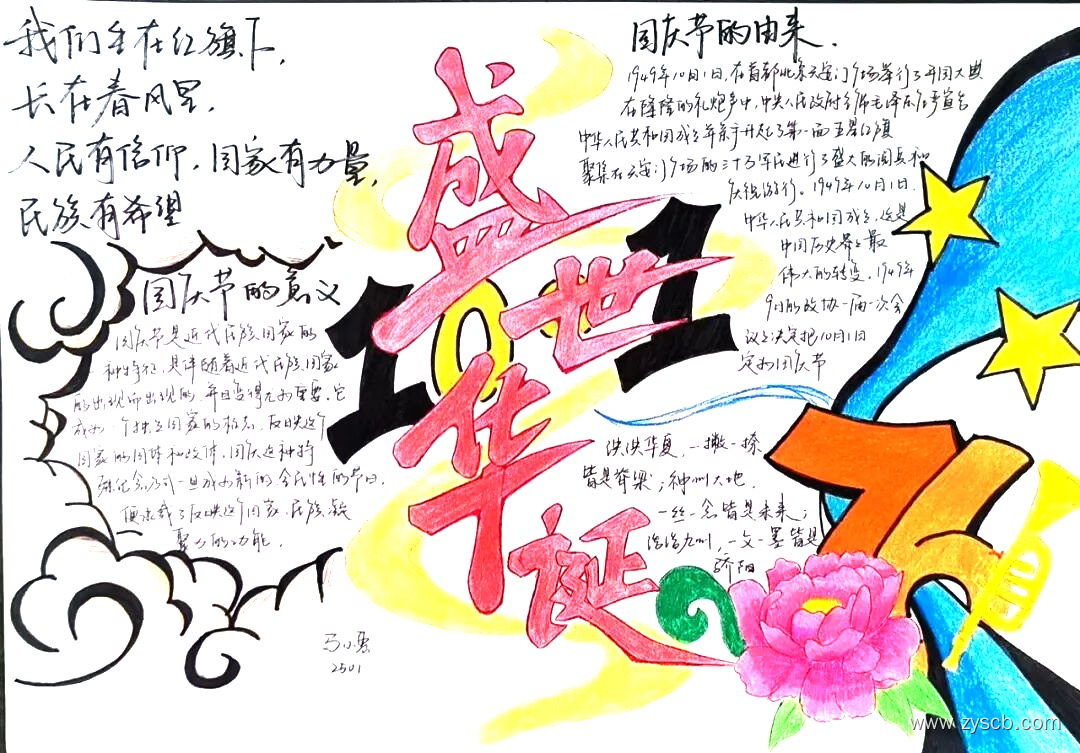 我们生在红旗下,
长在春风里,
人民有信仰,国家有力量,
民族有希望
国庆节的意义
国庆节是近代民族国家的
一种特征,是伴随着近代民族国家
的出现而出现的,并且变得尤为重要。它
成为一个独立国家的标志,反映这个
国家的国体和政体。国庆这种特
殊纪念方式一旦成为新的全民性的节日,
便承载了反映这个国家、民族凝
聚力的功能。
马小惠
2501
盛
世
华
诞
1001
国庆节的由来.
1949年10月1日,在首都北京天安门广场举行了开国大典
在隆隆的礼炮声中,中央人民政府主席毛泽东宣告
中华人民共和国成立并亲手升起了第一面五星红旗
聚集在天安门广场的三十万军民进行了盛大的阅兵和
庆祝游行。1949年10月1日,
中华人民共和国成立,这是
中国历史上最
伟大的转变。1949年
9月的政协一届一次会
议上决定把10月1日
定为国庆节
泱泱华夏,一撇一捺
皆是脊梁;神州大地,
一丝一念皆是未来;
浩浩九州,一文一墨皆是
骄阳
76
www.zyscb.com